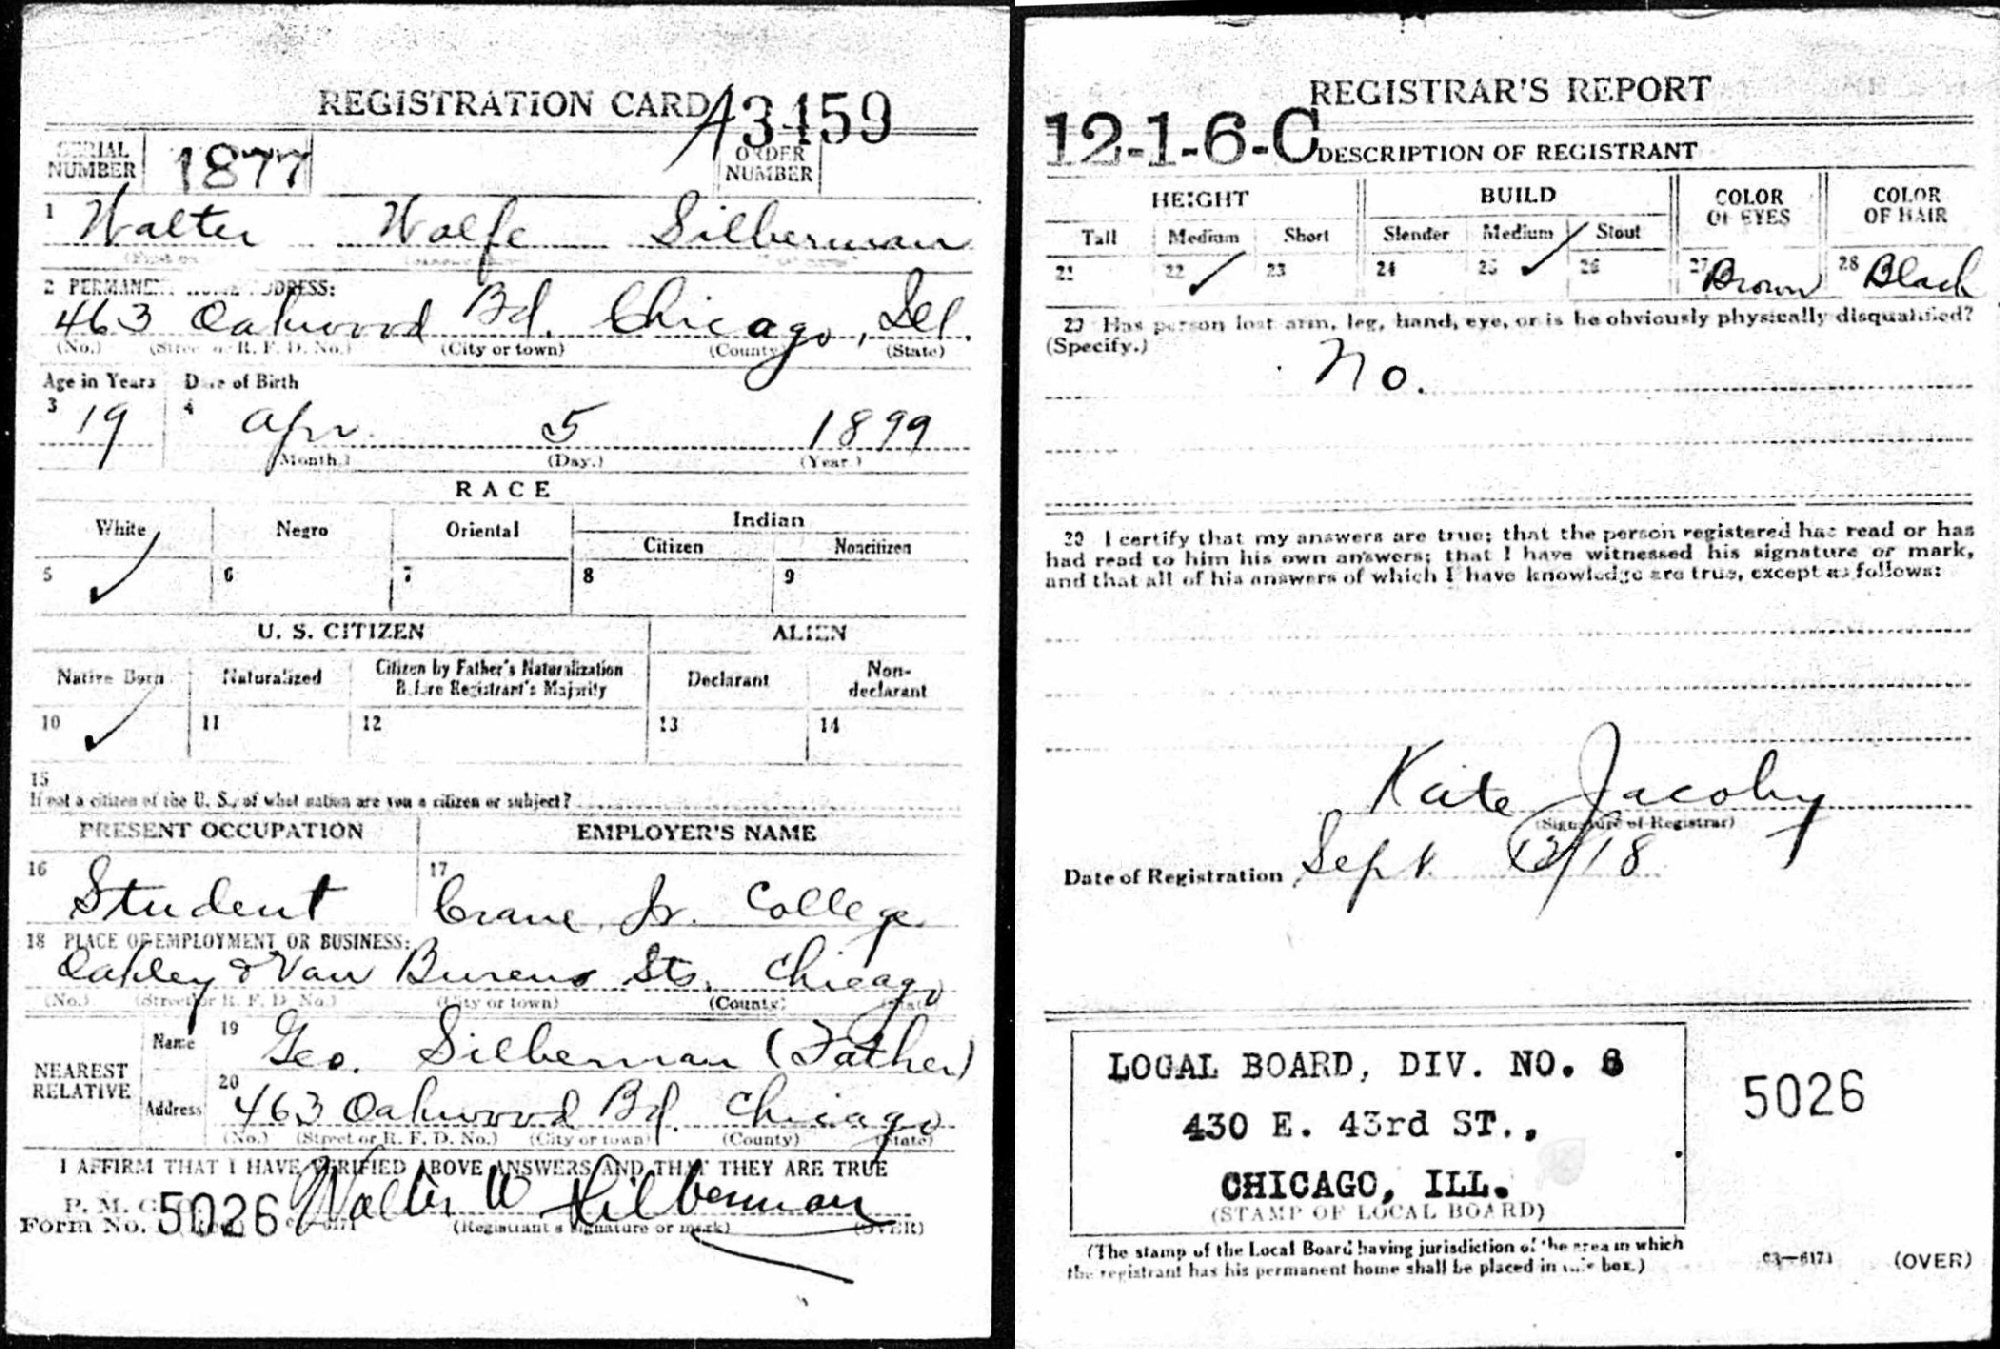 REGISTRATION CARD
A3459
SERIAL NUMBER 1877 ORDER NUMBER
1 Walter Wolfe Silberman
2 PERMANENT HOME ADDRESS:
463 Oakwood Bd. Chicago, Ill.
(No.) (Street or R. F. D. No.) (City or town) (County) (State)
Age in Years Date of Birth
3 19 4 Apr 5 1899
(Month.) (Day.) (Year.)
RACE
White Negro Oriental Indian
Citizen Noncitizen
5 ✓ 6 7 8 9
U. S. CITIZEN ALIEN
Native Born Naturalized Citizen by Father's Naturalization Before Registrant's Majority Declarant Non-declarant
10 ✓ 11 12 13 14
15
If not a citizen of the U. S., of what nation are you a citizen or subject?
PRESENT OCCUPATION EMPLOYER'S NAME
16 Student 17 Crane Jr. College
18 PLACE OF EMPLOYMENT OR BUSINESS:
Oakley & Van Burens Sts. Chicago
(No.) (Street or R. F. D. No.) (City or town) (County) (State)
NEAREST RELATIVE
Name 19 Geo. Silberman (Father)
Address 20 463 Oakwood Bd. Chicago
(No.) (Street or R. F. D. No.) (City or town) (County) (State)
I AFFIRM THAT I HAVE VERIFIED ABOVE ANSWERS AND THAT THEY ARE TRUE
P. M. G. O.
Form No. 5026 Walter W Silberman
(Registrant's signature or mark) (OVER)
REGISTRAR'S REPORT
12-1-6-C
DESCRIPTION OF REGISTRANT
HEIGHT BUILD COLOR OF EYES COLOR OF HAIR
Tall Medium Short Slender Medium Stout
21 22 ✓ 23 24 25 ✓ 26 27 Brown 28 Black
29 Has person lost arm, leg, hand, eye, or is he obviously physically disqualified?
(Specify.) No.
30 I certify that my answers are true; that the person registered has read or has
had read to him his own answers; that I have witnessed his signature or mark,
and that all of his answers of which I have knowledge are true, except as follows:
Kate Jacoby
(Signature of Registrar)
Date of Registration Sept. 12/18
LOCAL BOARD, DIV. NO. 6
430 E. 43rd ST.,
CHICAGO, ILL.
(STAMP OF LOCAL BOARD)
5026
(The stamp of the Local Board having jurisdiction of the area in which
the registrant has his permanent home shall be placed in this box.)
03—6171 (OVER)